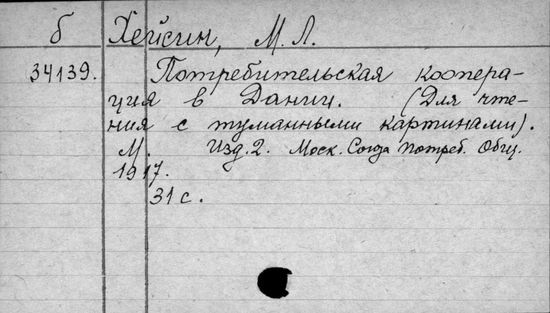 б Хейсин, М. Л.
34139. Потребительская коопера-
ция в Дании. (Для чте-
ния с туманными картинами).
М. Изд. 2. Моск. Союза Потреб. Общ.
1917.
31 с.